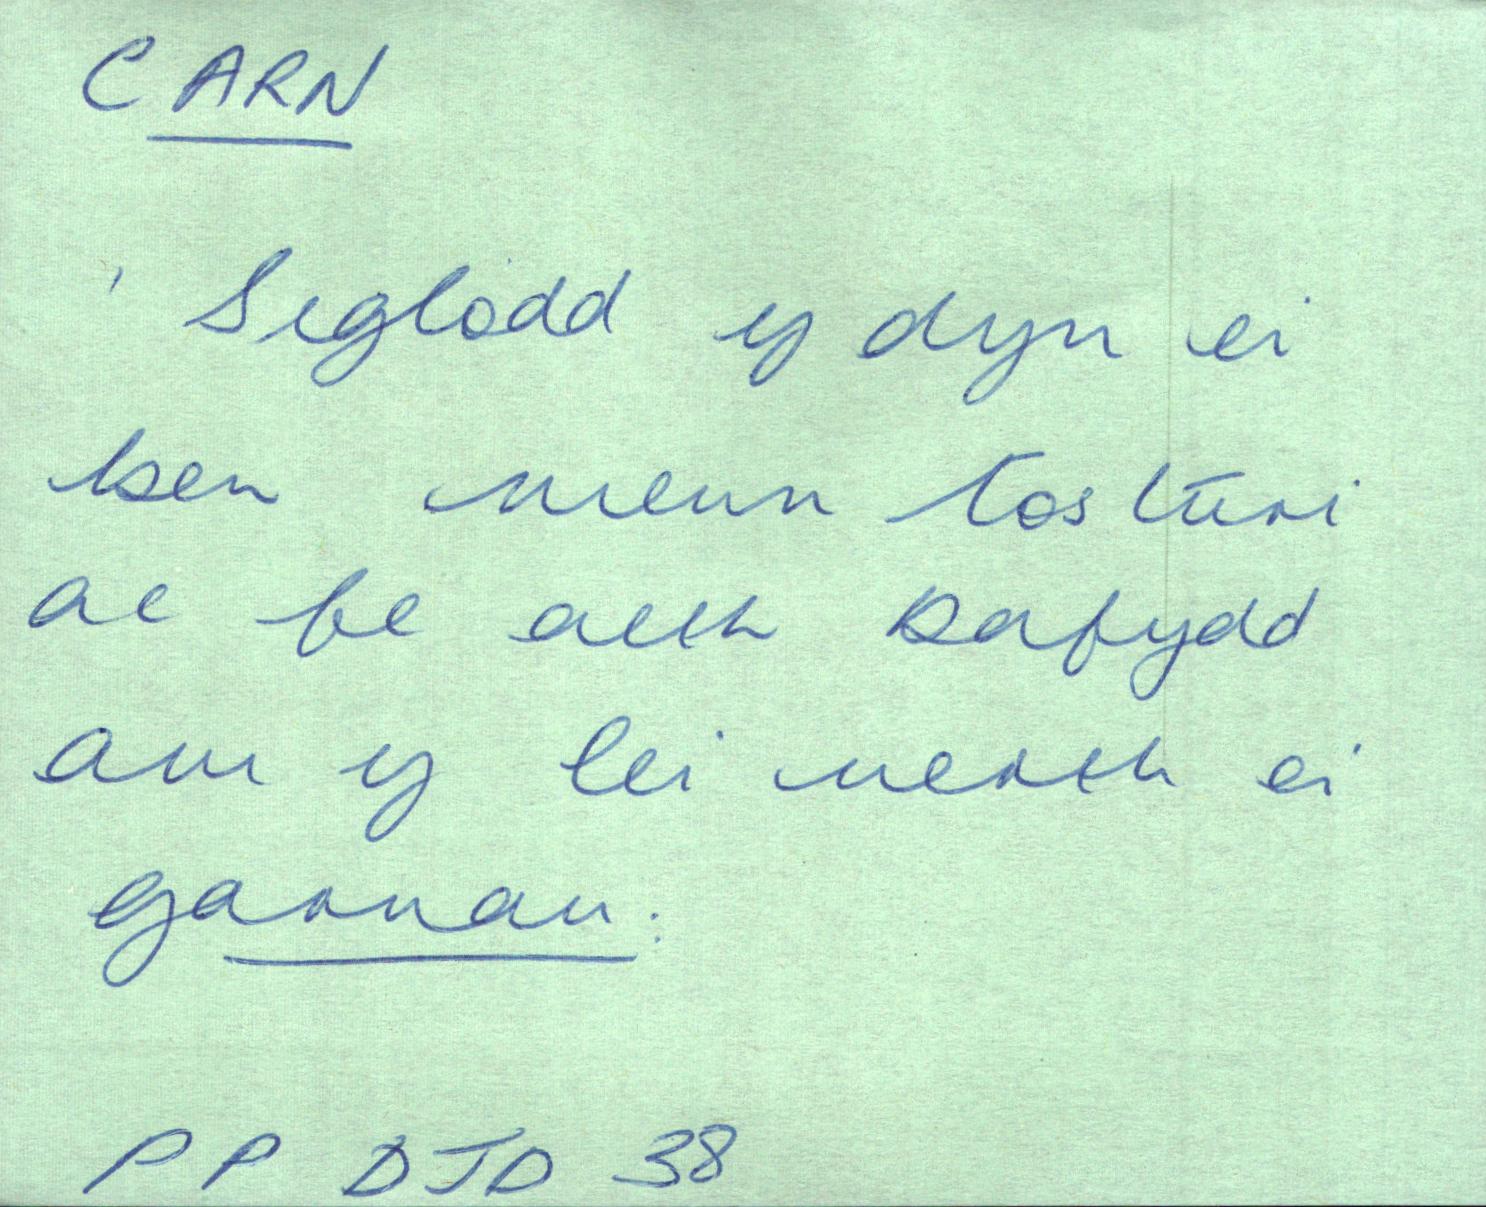 CARN
' Siglodd y dyn ei
ben mewn tosturi
ac fe aeth Dafydd
am y lei nerth ei
garnau.
PP DJD 38